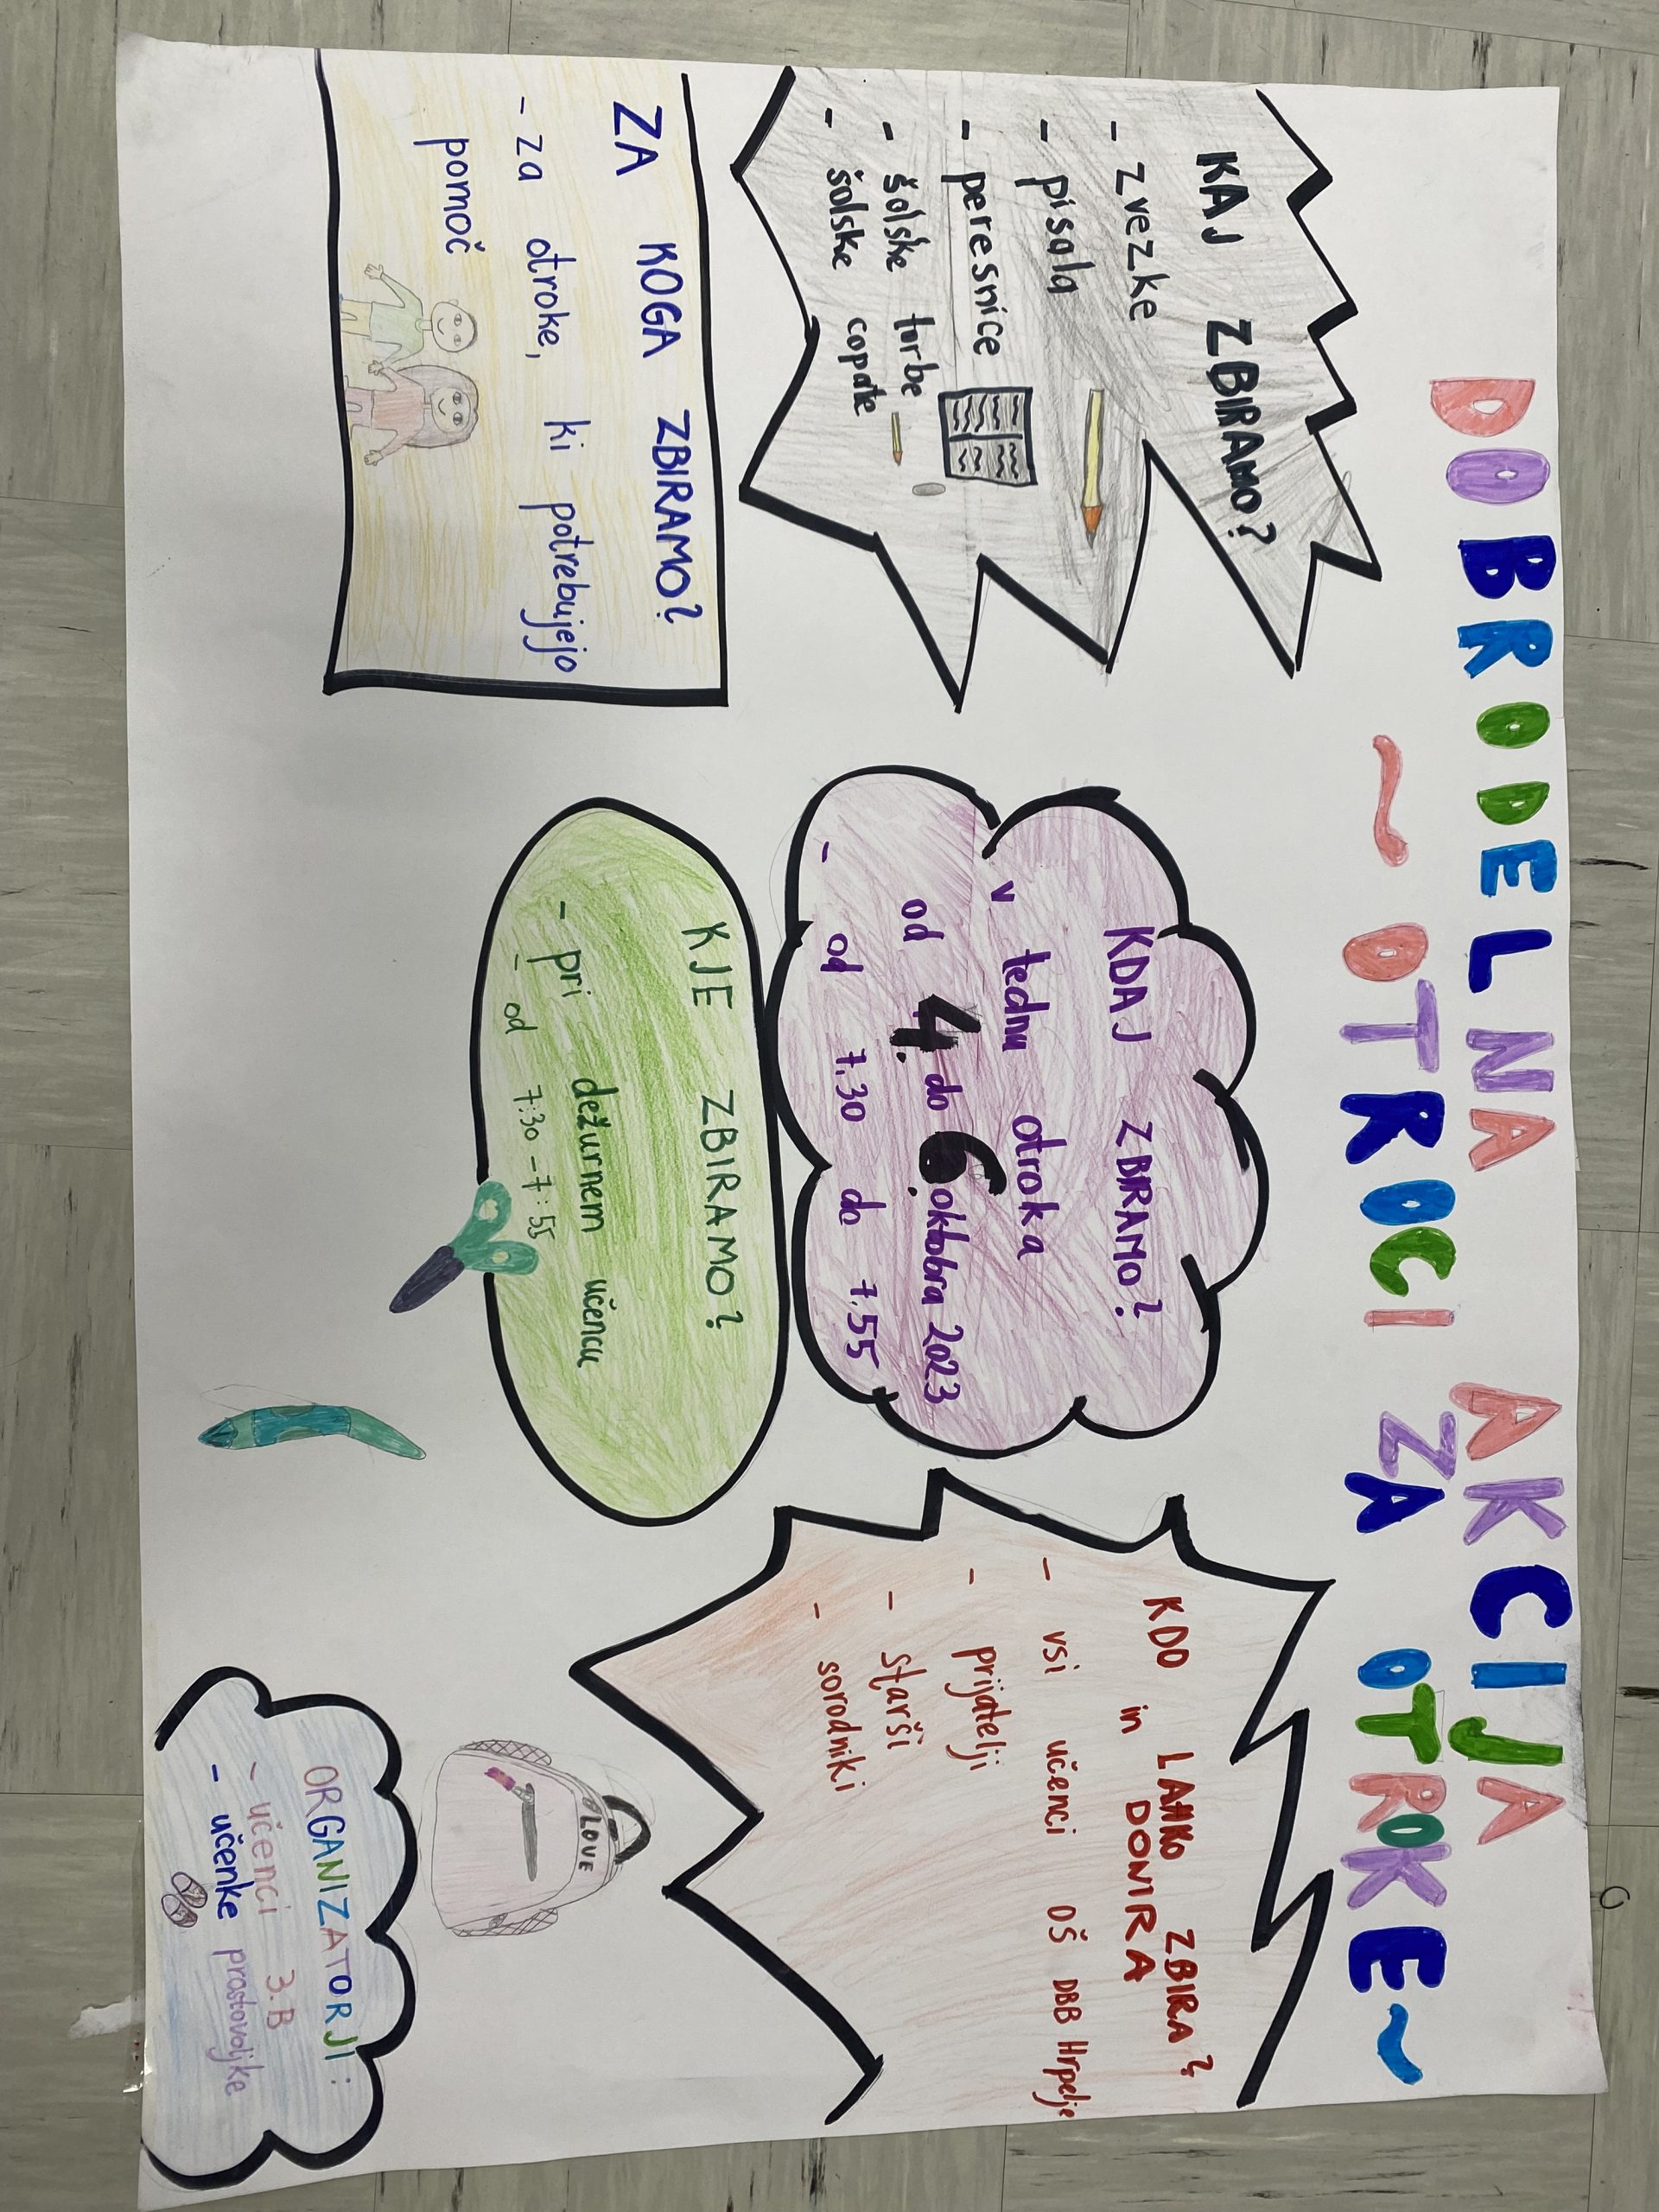 DOBRODELNA AKCIJA
~ OTROCI ZA OTROKE ~
KAJ ZBIRAMO?
- zvezke
- pisala
- peresnice
- šolske torbe
- šolske copate
ZA KOGA ZBIRAMO?
- za otroke, ki potrebujejo
pomoč
KDAJ ZBIRAMO?
v tednu otroka
od 4. do 6. oktobra 2023
- od 7.30 do 7.55
KJE ZBIRAMO?
- pri dežurnem učencu
- od 7:30 - 7:55
KDO LAHKO ZBIRA?
in DONIRA
- vsi učenci OŠ DBB Hrpelje
- prijatelji
- starši
- sorodniki
LOVE
ORGANIZATORJI:
- učenci 3.B
- učenke prostovoljke